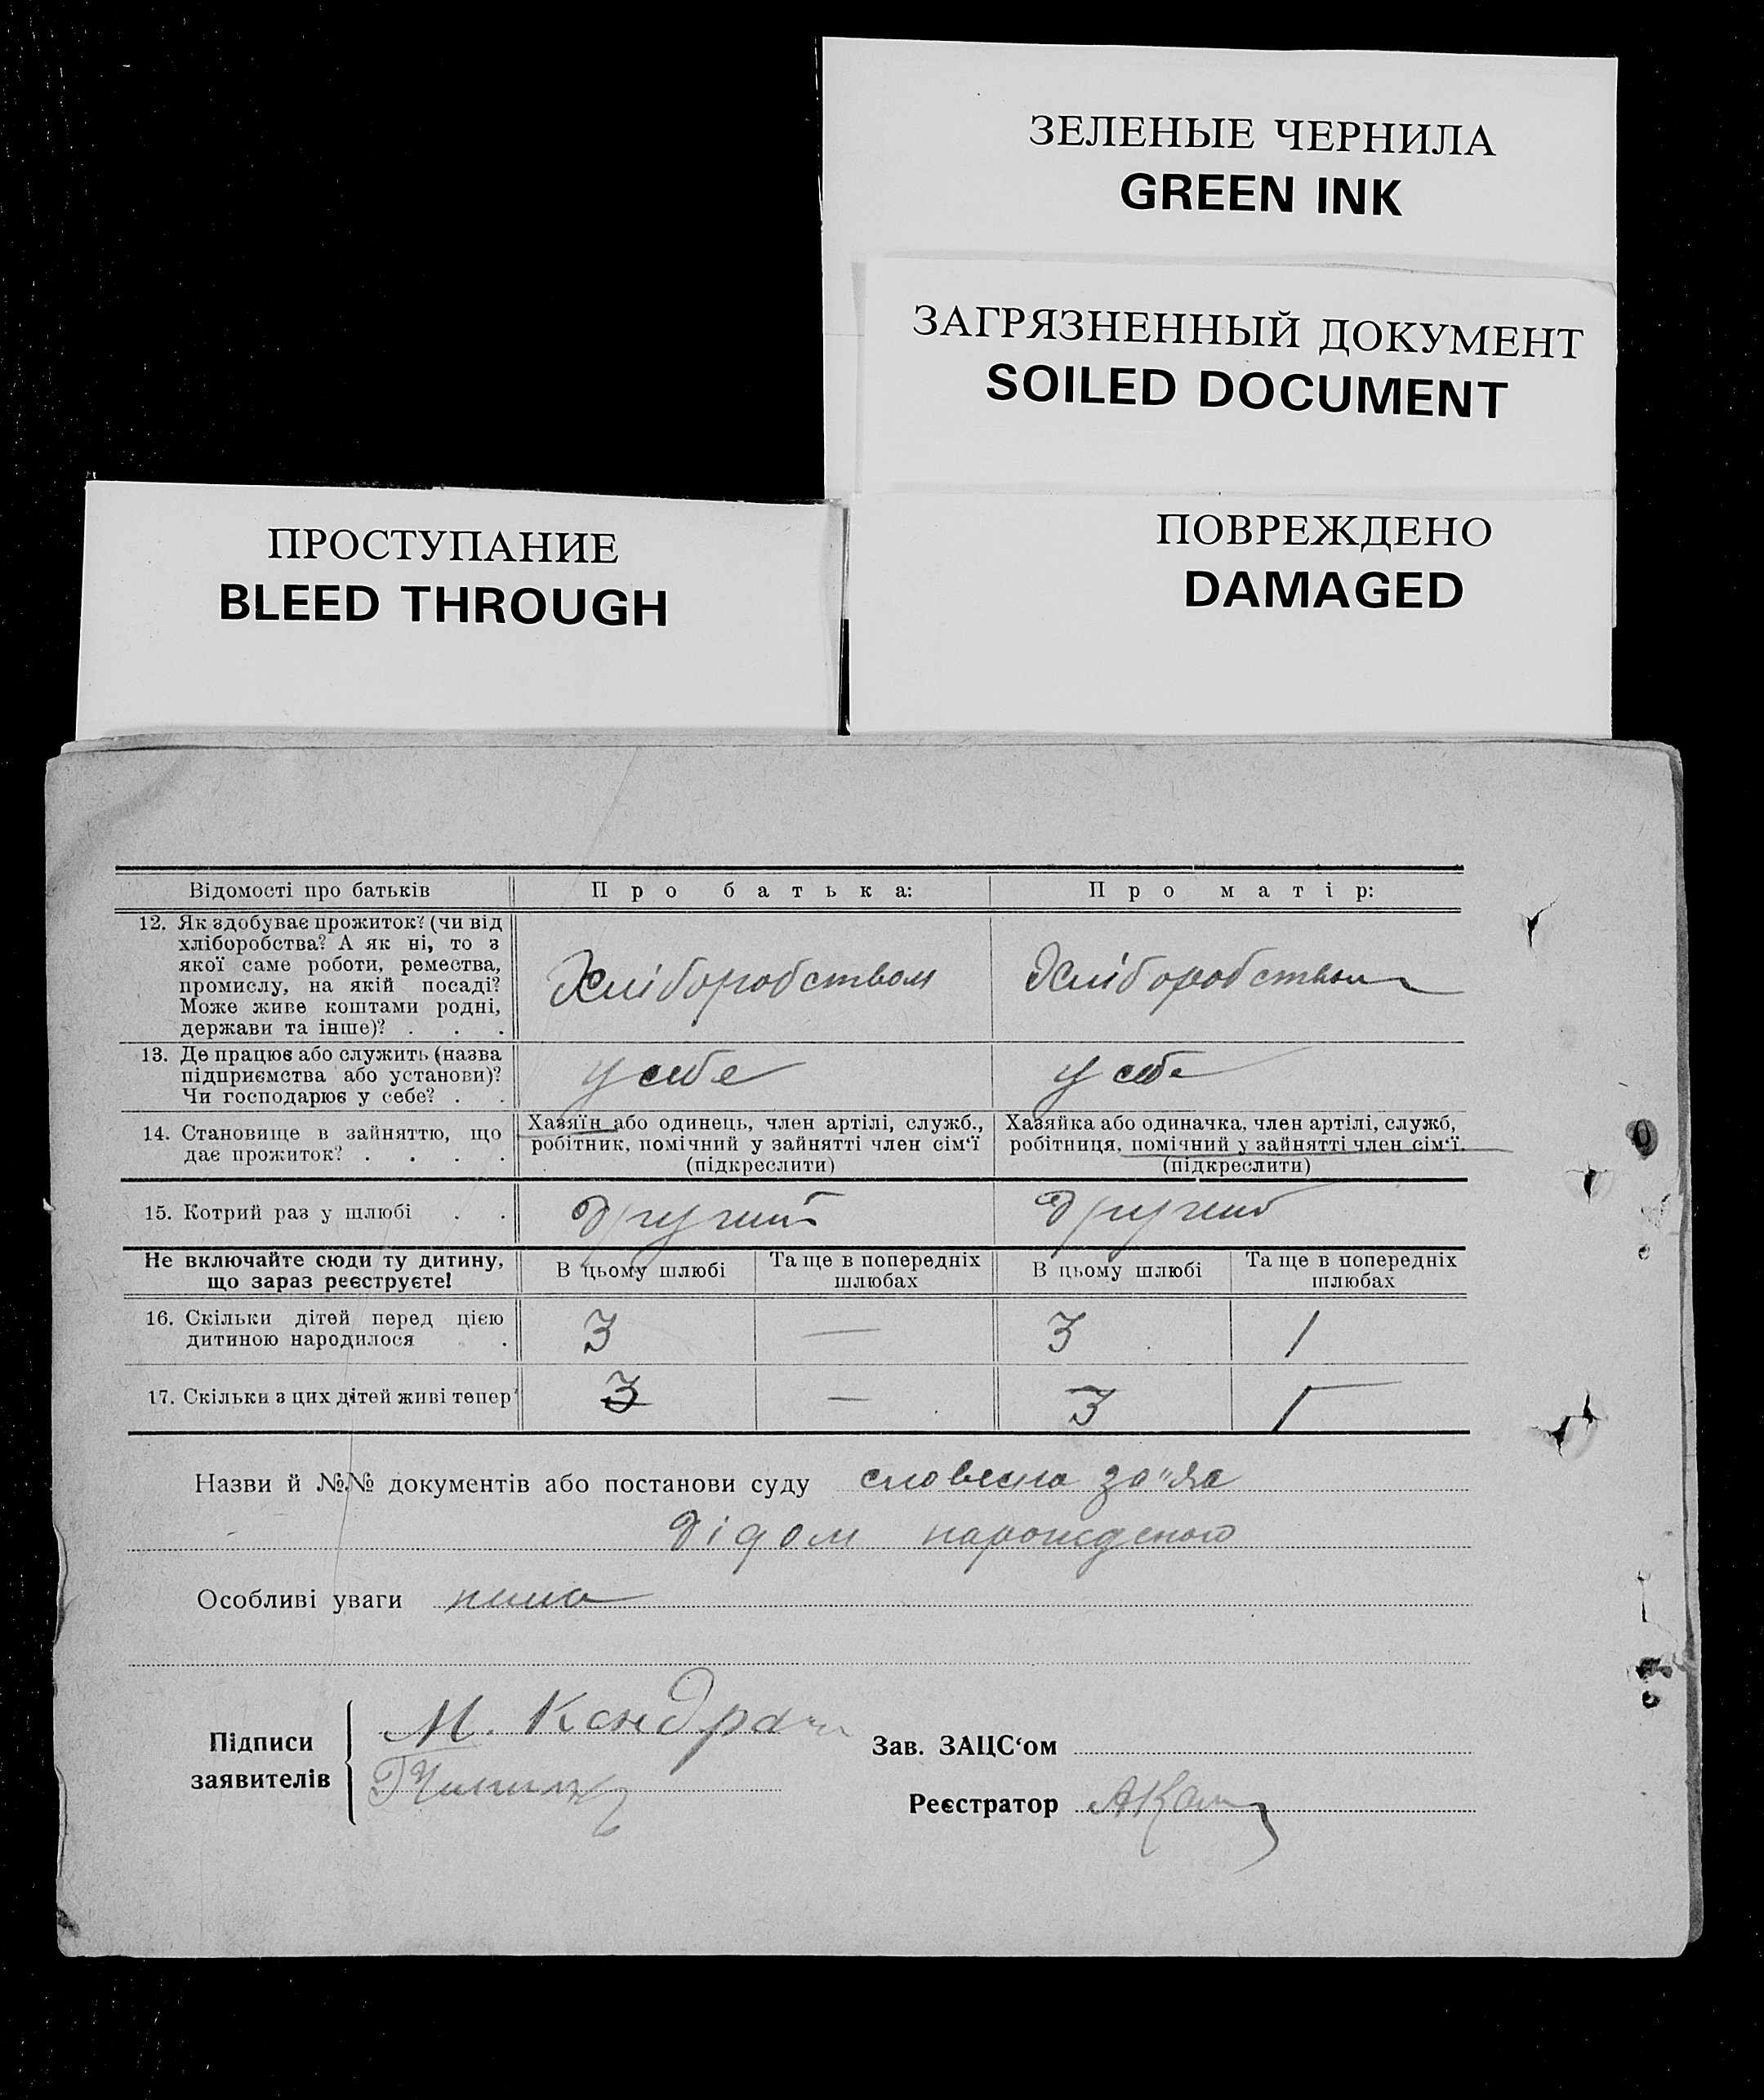 ЗЕЛЕНЫЕ ЧЕРНИЛА
GREEN INK
ЗАГРЯЗНЕННЫЙ ДОКУМЕНТ
SOILED DOCUMENT
ПРОСТУПАНИЕ
BLEED THROUGH
ПОВРЕЖДЕНО
DAMAGED
Відомості про батьків
Про батька:
Про матір:
12. Як здобуває прожиток? (чи від
хліборобства? А як ні, то з
якої саме роботи, ремества,
промислу, на якій посаді?
Може живе коштами родні,
держави та інше)? . . .
Хліборобством
Хліборобством
13. Де працює або служить (назва
підприємства або установи)?
Чи господарює у себе? . .
у себе
у себе
14. Становище в зайняттю, що
дає прожиток? . . . .
Хазяїн або одинець, член артілі, служб.,
робітник, помічний у зайнятті член сім'ї
(підкреслити)
Хазяйка або одиначка, член артілі, служб,
робітниця, помічний у зайнятті член сім'ї.
(підкреслити)
15. Котрий раз у шлюбі . .
другий
другий
Не включайте сюди ту дитину,
що зараз реєструєте!
В цьому шлюбі
Та ще в попередніх
шлюбах
В цьому шлюбі
Та ще в попередніх
шлюбах
16. Скільки дітей перед цією
дитиною народилося .
3
—
3
1
17. Скільки з цих дітей живі тепер
3
—
3
1
Назви й №№ документів або постанови суду словесна за"ва
дідом народженого
Особливі уваги нема
Підписи
заявителів
М.
Зав. ЗАЦС'ом
Реєстратор